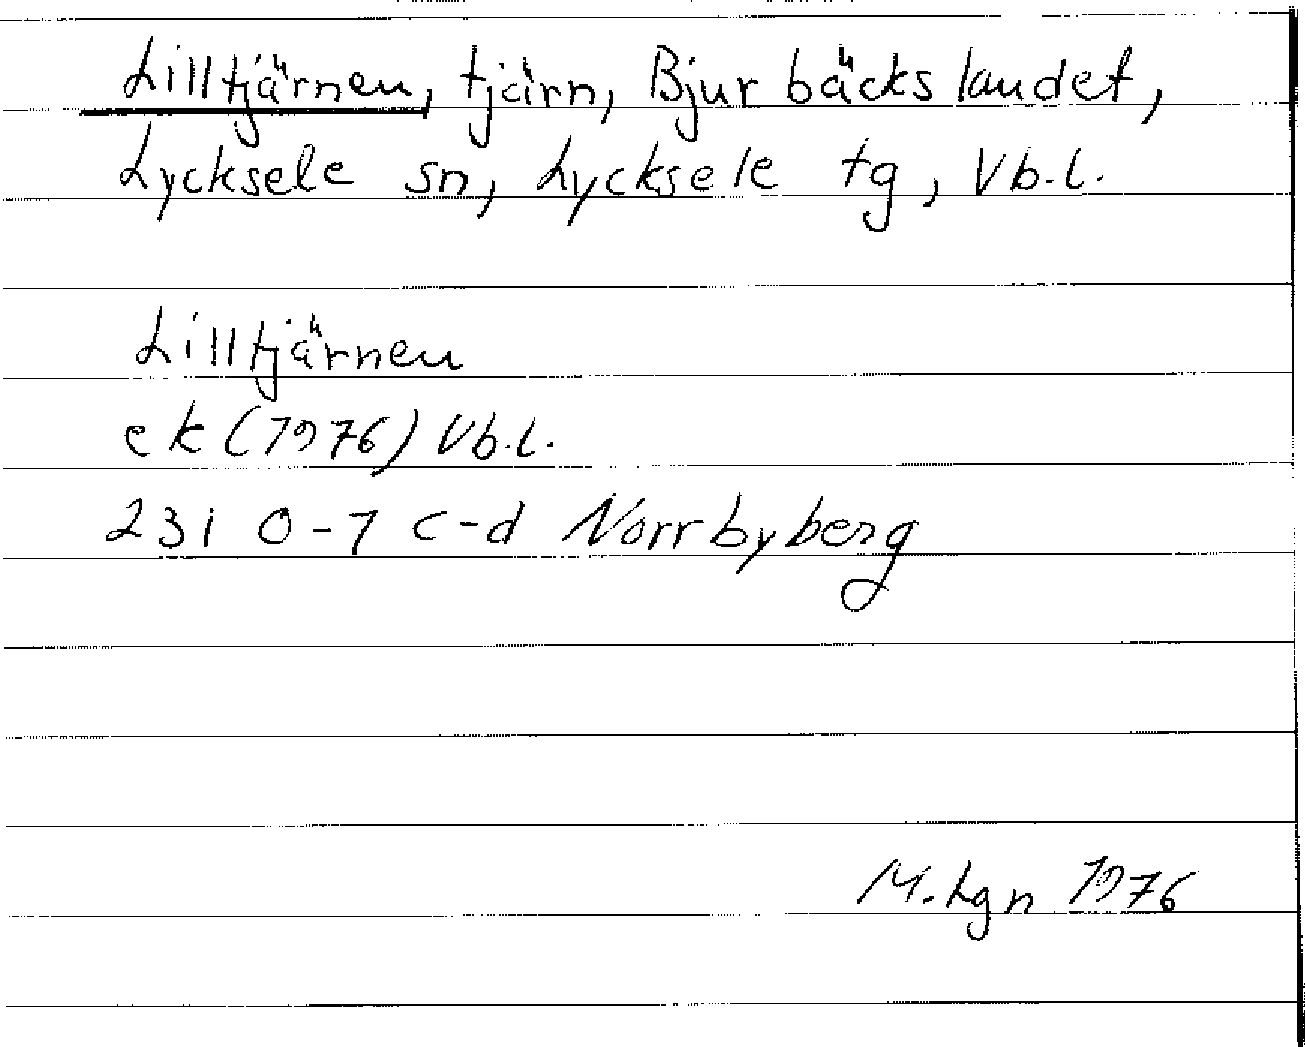 Lilltjärnen, tjärn, Bjurbäckslandet,
Lycksele sn, Lycksele tg, Vb.l.
Lilltjärnen
ek (1976) Vb.l.
23I 0-1 c-d Norrbyberg
M. Lgn 1976